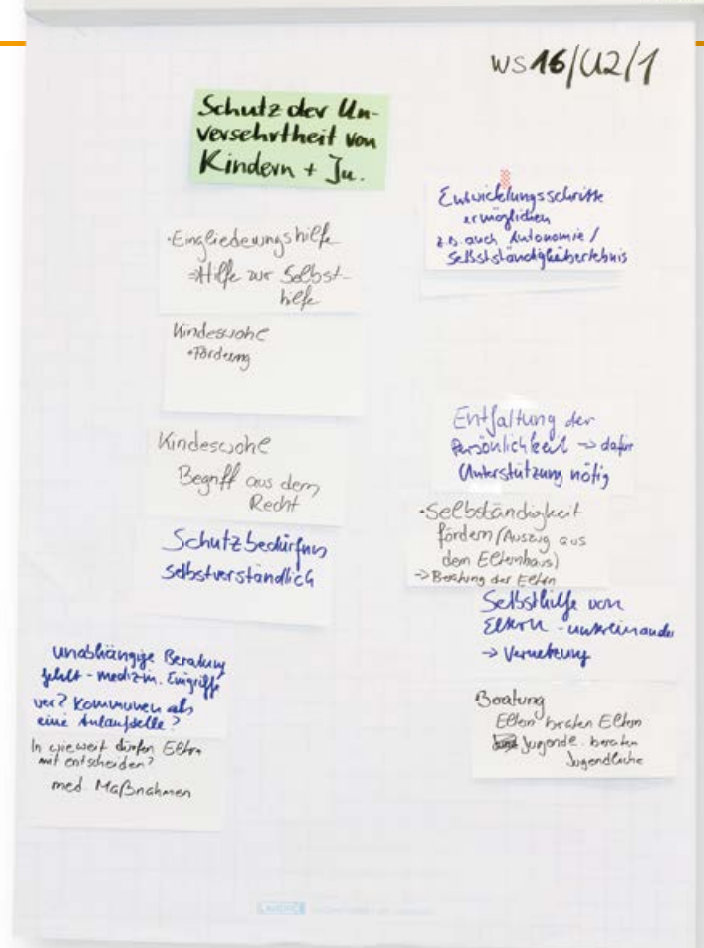 WS 16/U2/1
Schutz der Un-
versehrtheit von
Kindern + Ju.
- Eingliederungshilfe
⇒ Hilfe zur Selbst-
hilfe
Kindeswohl
+Förderung
Kindeswohl
Begriff aus dem
Recht
Schutzbedürfnis
selbstverständlich
unabhängige Beratung
fehlt - medizin. Eingriffe
ver? Kommunen als
eine Anlaufstelle?
In wieweit dürfen Eltern
mit entscheiden?
med. Maßnahmen
Entwicklungsschritte
ermöglichen
z.B. auch Autonomie /
Selbstständigkeitserlebnis
Entfaltung der
Persönlichkeit → dafür
Unterstützung nötig
- Selbständigkeit
fördern (Auszug aus
dem Elternhaus)
→ Beratung der Eltern
Selbsthilfe von
Eltern - untereinander
→ Vernetzung
Beratung
Eltern beraten Eltern
Jugendl. beraten
Jugendliche